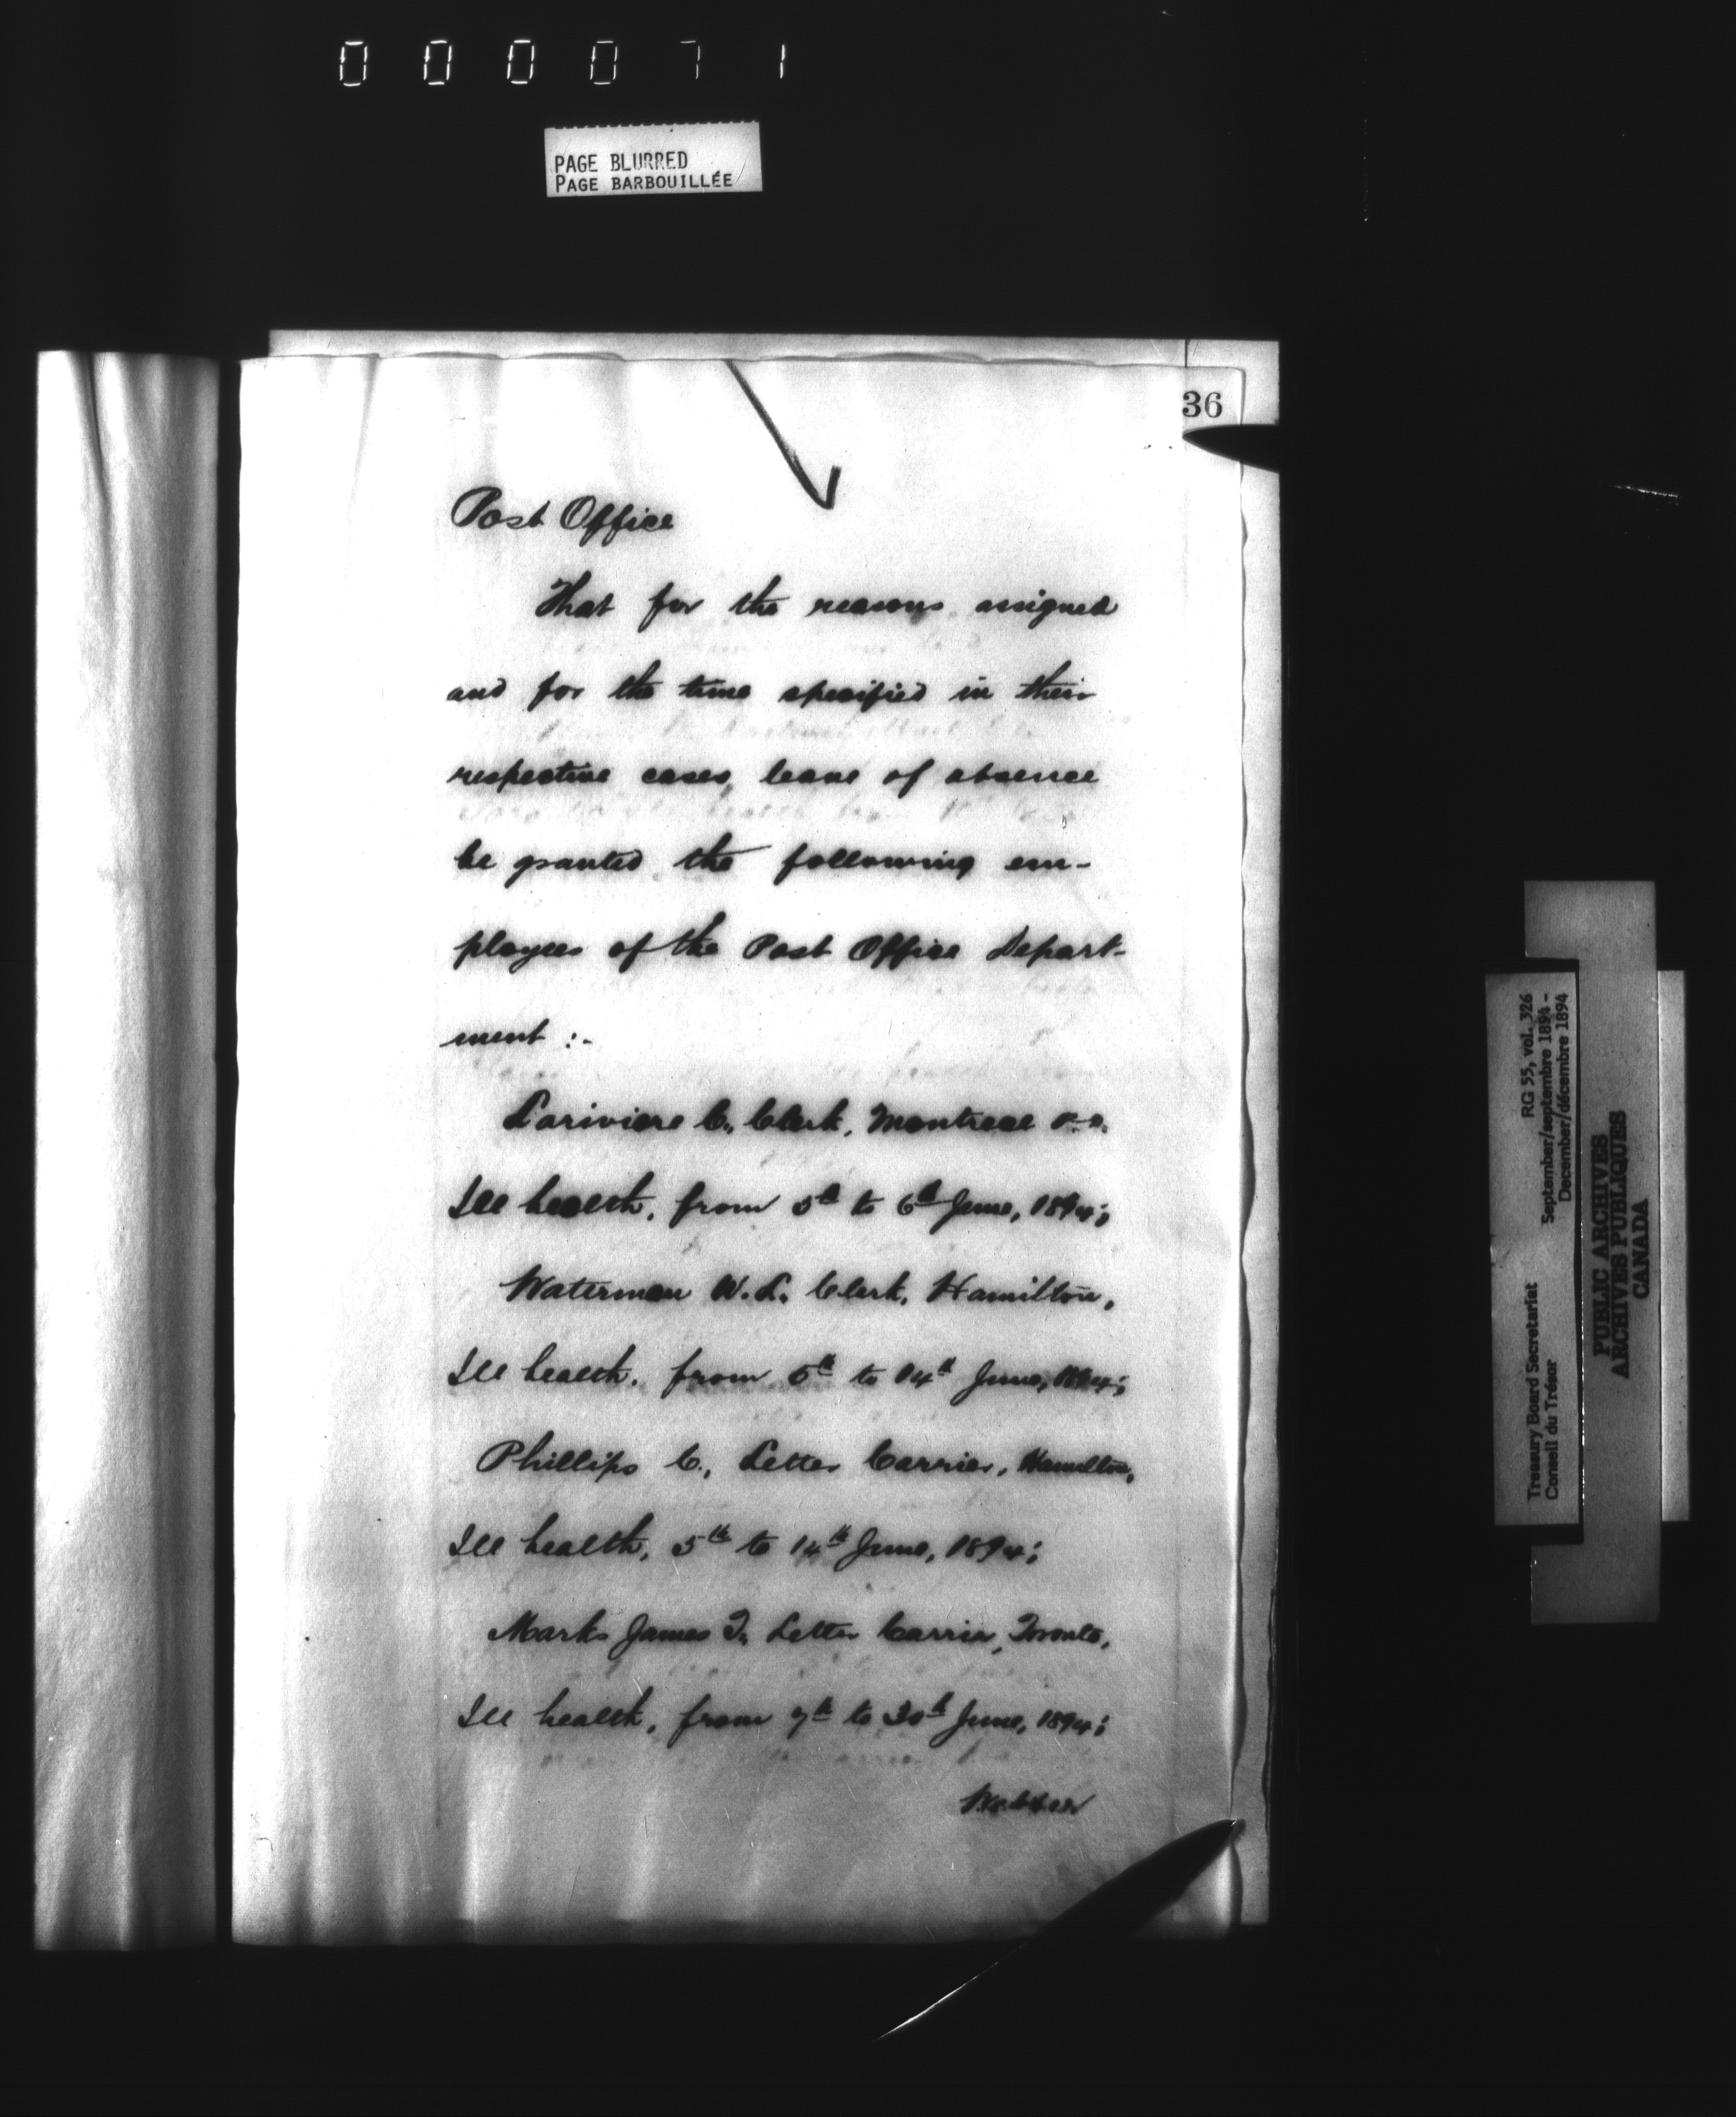 000071
PAGE BLURRED
PAGE BARBOUILLÉE
36
Post Office
That for the reasons assigned
and for the time specified in their
respective cases, leave of absence
be granted the following em-
ployees of the Post Office Depart-
ment :-
Lariviere C., Clerk, Montreal P.O.
Ill health, from 5th to 6th June, 1894;
Waterman W.L. Clerk, Hamilton,
Ill health, from to 14th June, 1894;
Phillips C., Letter Carrier, Hamilton,
Ill health, 5th to 14th June, 1894;
Marks James Letter Carrier, Toronto,
Ill health, from 7th to 30th June, 1894;
Treasury Board Secretariat RG 55, vol. 326
Conseil du Trésor September/septembre 1894 -
December/décembre 1894
PUBLIC ARCHIVES
ARCHIVES PUBLIQUES
CANADA